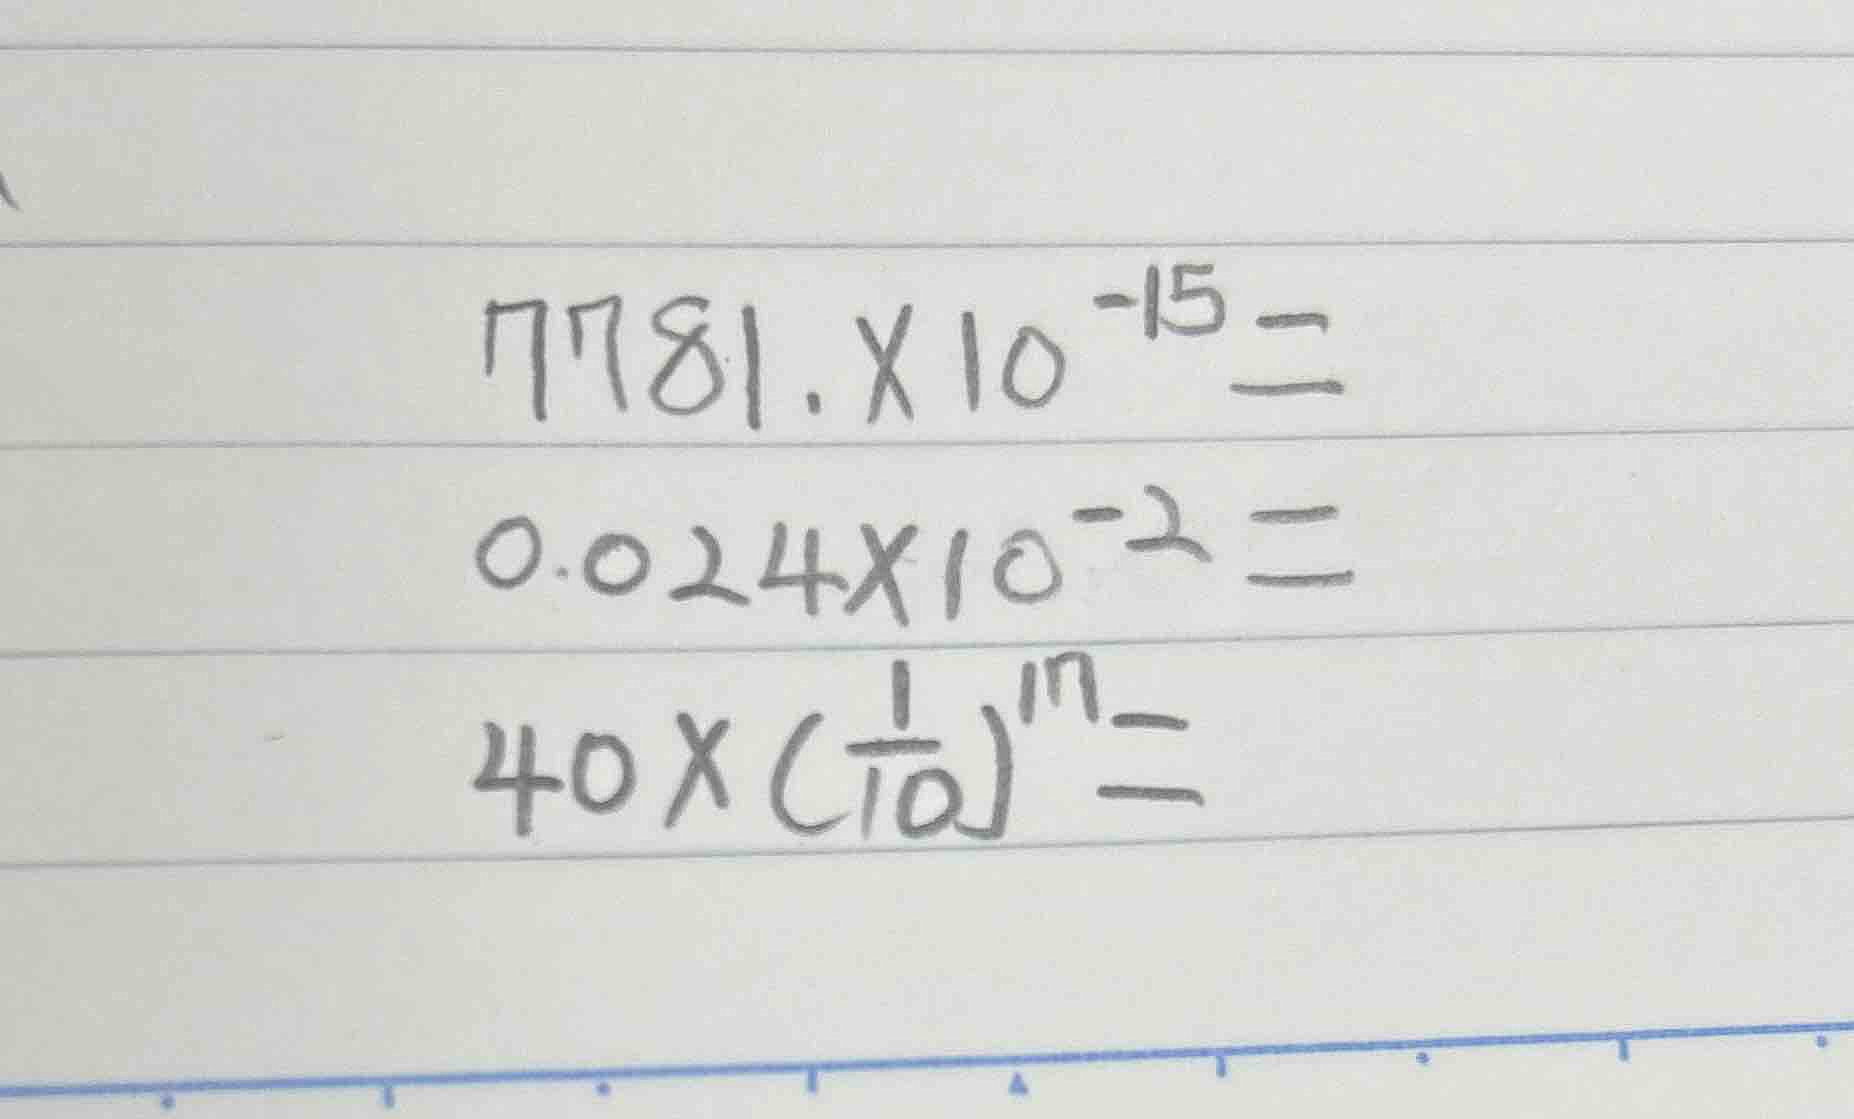 7781.×10⁻¹⁵=
0.024×10⁻²=
40×(1/10)¹⁷=